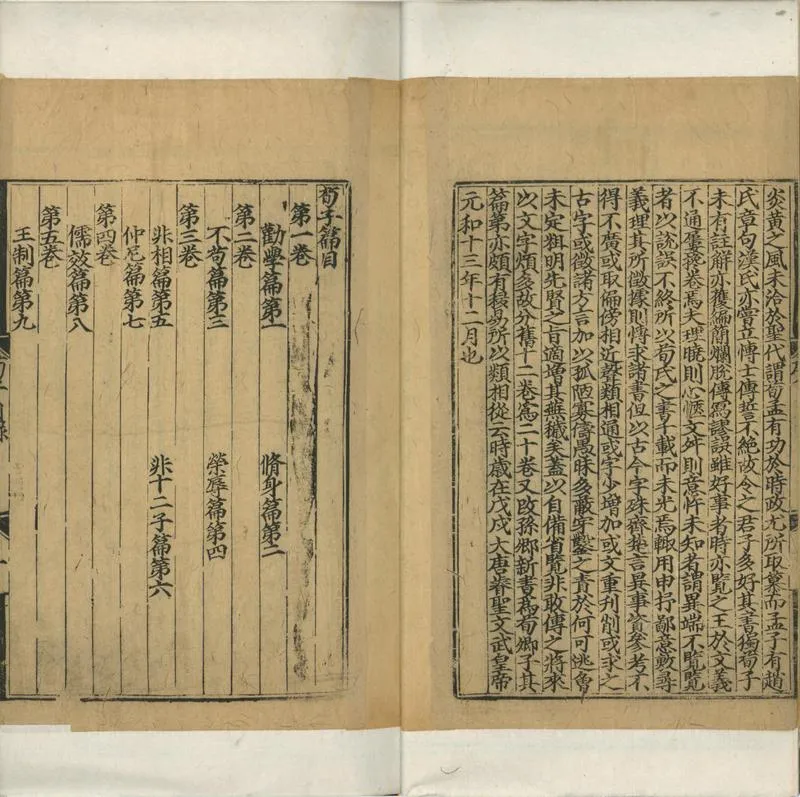 炎黄之風未洽於聖代謂荀孟有功於時政尤所耽慕而孟子有趙
氏章句漢氏亦嘗立博士傳習不絶故今之君子多好其書獨荀子
未有註解亦復編簡爛脫傳寫謬誤雖好事者時亦覽之至於文義
不通屢掩卷焉夫理曉則心愜文舛則意忤未知者謂異端不覽覽
者以脫誤不終所以荀氏之書千載而未光焉輒用申抒鄙意敷尋
義理其所徵據則博求諸書但以古今字殊齊楚言異事資參考不
得不廣或取偏傍相近聲類相通或字少增加或文重刊削或求之
古字或徵諸方言加以孤陋寡儔愚昧多蔽穿鑿之責於何可逃曾
未定粗明先賢之旨適增其蕪穢矣蓋以自備省覽非敢傳之將來
以文字煩多故分舊十二卷爲二十卷又改孫卿新書爲荀卿子其
篇第亦頗有移易所以類相從云時歲在戊戌大唐睿聖文武皇帝
元和十三年十二月也
荀子篇目
第一卷
勸學篇第一 脩身篇第二
第二卷
不苟篇第三 榮辱篇第四
第三卷
非相篇第五 非十二子篇第六
仲尼篇第七
第四卷
儒效篇第八
第五卷
王制篇第九